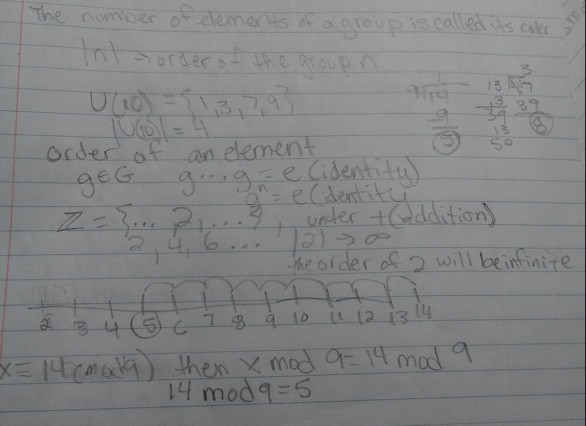 The number of elements of a group is called its order
|n| → order of the group n
U(10) = {1,3,7,9}
|U(10)| = 4
order of an element
g∈G g...g = e (identity)
gⁿ = e (identity
Z = {... 2, ...}, under + (addition)
2, 4, 6... |2| → ∞
the order of 2 will be infinite
2 3 4 5 6 7 8 9 10 11 12 13 14
x ≡ 14 (mod 9) then x mod 9 = 14 mod 9
14 mod 9 = 5
1
9 14
9
5
3
13
39
39
8
13
50